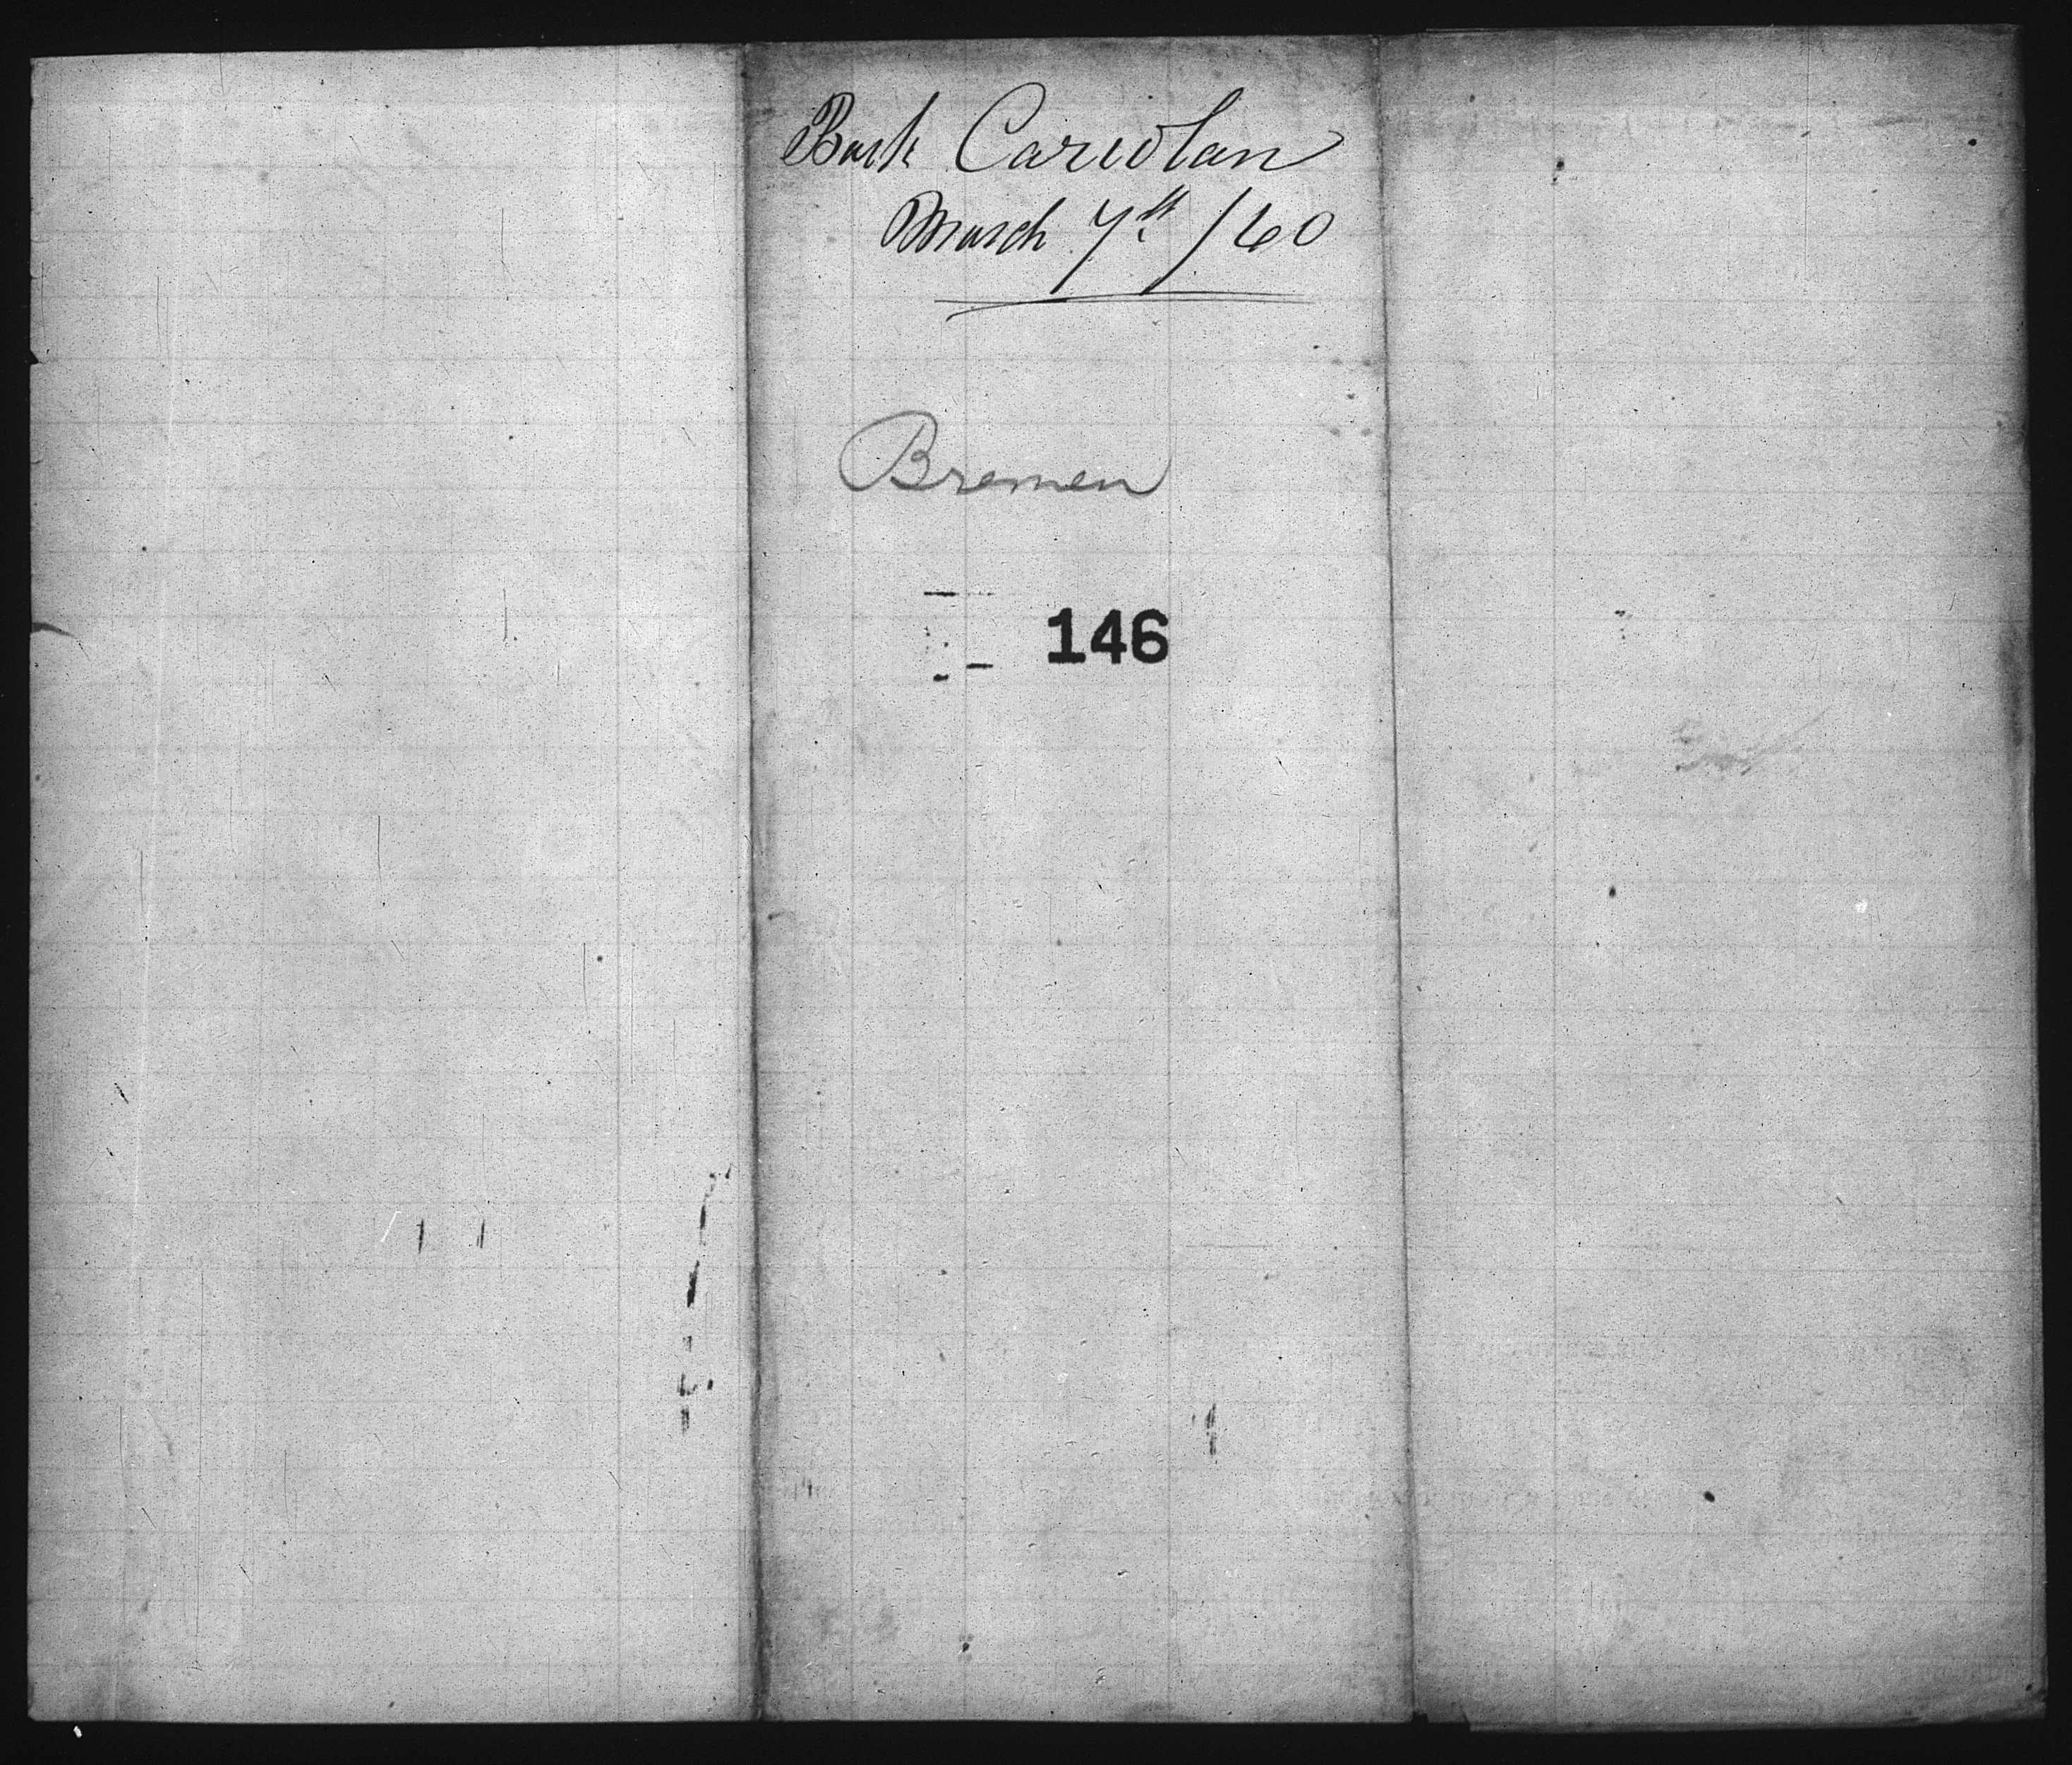 Bark Cariolan
March 7th /60
Bremen
146